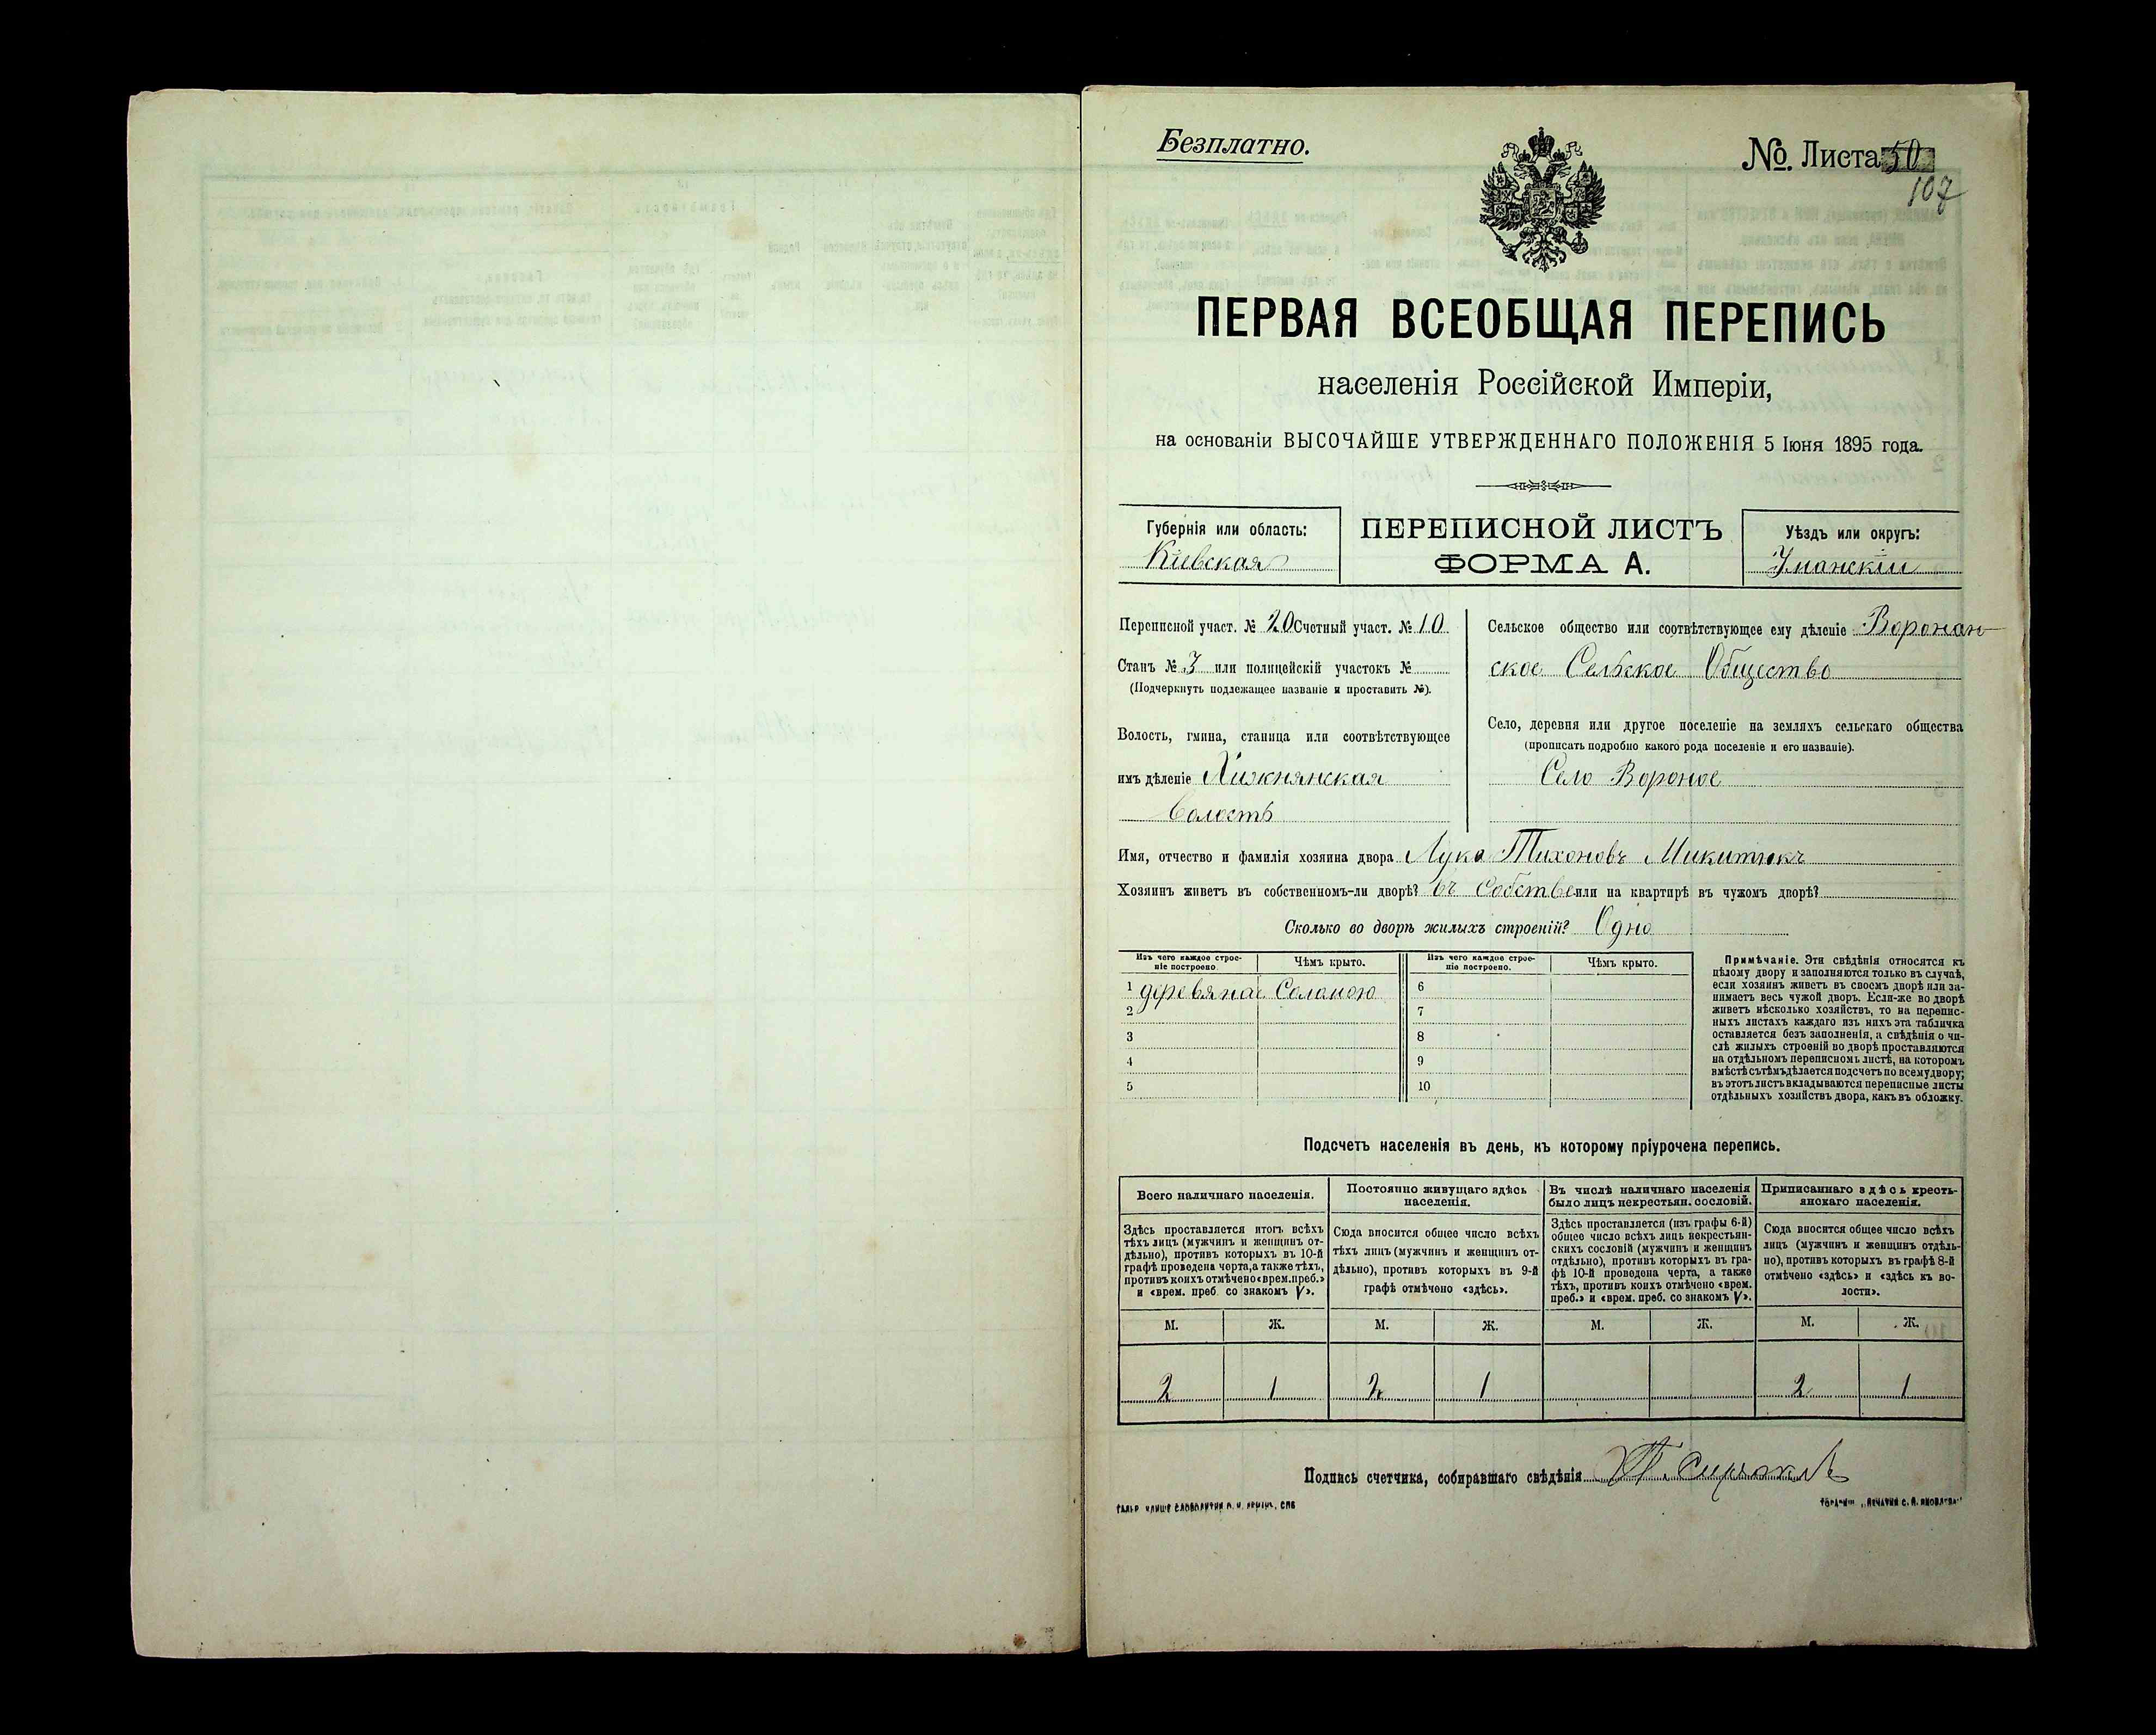 Безплатно.
№. Листа 50
107
ПЕРВАЯ ВСЕОБЩАЯ ПЕРЕПИСЬ
населенія Россійской Имперіи,
на основаніи ВЫСОЧАЙШЕ УТВЕРЖДЕННАГО ПОЛОЖЕНІЯ 5 Іюня 1895 года.
Губернія или область:
Кіевская
ПЕРЕПИСНОЙ ЛИСТЪ
ФОРМА А.
Уѣздъ или округъ:
Уманскіи
Переписной участ. № 20 Счетный участ. № 10
Станъ № 3 или полицейскій участокъ №
(Подчеркнуть подлежащее названіе и проставить №).
Волость, гмина, станица или соотвѣтствующее
имъ дѣленіе Хижнянская
Волость
Сельское общество или соотвѣтствующее ему дѣленіе Воронян
ское Сельское Общество
Село, деревня или другое поселеніе на земляхъ сельскаго общества
(прописать подробно какого рода поселеніе и его названіе).
Село Вороное
Имя, отчество и фамилія хозяина двора Лука Тихоновъ Микитюкъ
Хозяинъ живетъ въ собственномъ-ли дворѣ? въ Собстве или на квартирѣ въ чужомъ дворѣ?
Сколько во дворѣ жилыхъ строеній? Одно
Изъ чего каждое строе-
ніе построено.
Чѣмъ крыто.
Изъ чего каждое строе-
ніе построено.
Чѣмъ крыто.
1 деревяное Соломою 6
2 7
3 8
4 9
5 10
Примѣчаніе. Эти свѣдѣнія относятся къ
цѣлому двору и заполняются только въ случаѣ,
если хозяинъ живетъ въ своемъ дворѣ или за-
нимаетъ весь чужой дворъ. Если-же во дворѣ
живетъ нѣсколько хозяйствъ, то на перепис-
ныхъ листахъ каждаго изъ нихъ эта табличка
оставляется безъ заполненія, а свѣдѣнія о чи-
слѣ жилыхъ строеній во дворѣ проставляются
на отдѣльномъ переписномъ листѣ, на которомъ
вмѣстѣ съ тѣмъ дѣлается подсчетъ по всему двору;
въ этотъ листъ вкладываются переписные листы
отдѣльныхъ хозяйствъ двора, какъ въ обложку.
Подсчетъ населенія въ день, къ которому пріурочена перепись.
Всего наличнаго населенія.
Здѣсь проставляется итогъ всѣхъ
тѣхъ лицъ (мужчинъ и женщинъ от-
дѣльно), противъ которыхъ въ 10-й
графѣ проведена черта, а также тѣхъ,
противъ коихъ отмѣчено «врем. преб.»
и «врем. преб. со знакомъ V».
Постоянно живущаго здѣсь
населенія.
Сюда вносится общее число всѣхъ
тѣхъ лицъ (мужчинъ и женщинъ от-
дѣльно), противъ которыхъ въ 9-й
графѣ отмѣчено «здѣсь».
Въ числѣ наличнаго населенія
было лицъ некрестьян. сословій.
Здѣсь проставляется (изъ графы 6-й)
общее число всѣхъ лицъ некрестьян-
скихъ сословій (мужчинъ и женщинъ
отдѣльно), противъ которыхъ въ гра-
фѣ 10-й проведена черта, а также
тѣхъ, противъ коихъ отмѣчено «врем.
преб.» и «врем. преб. со знакомъ V».
Приписаннаго здѣсь кресть-
янскаго населенія.
Сюда вносится общее число всѣхъ
лицъ (мужчинъ и женщинъ отдѣль-
но), противъ которыхъ въ графѣ 8-й
отмѣчено «здѣсь» и «здѣсь къ во-
лости».
М. Ж. М. Ж. М. Ж. М. Ж.
2 1 2 1 2 1
Подпись счетчика, собиравшаго свѣдѣнія